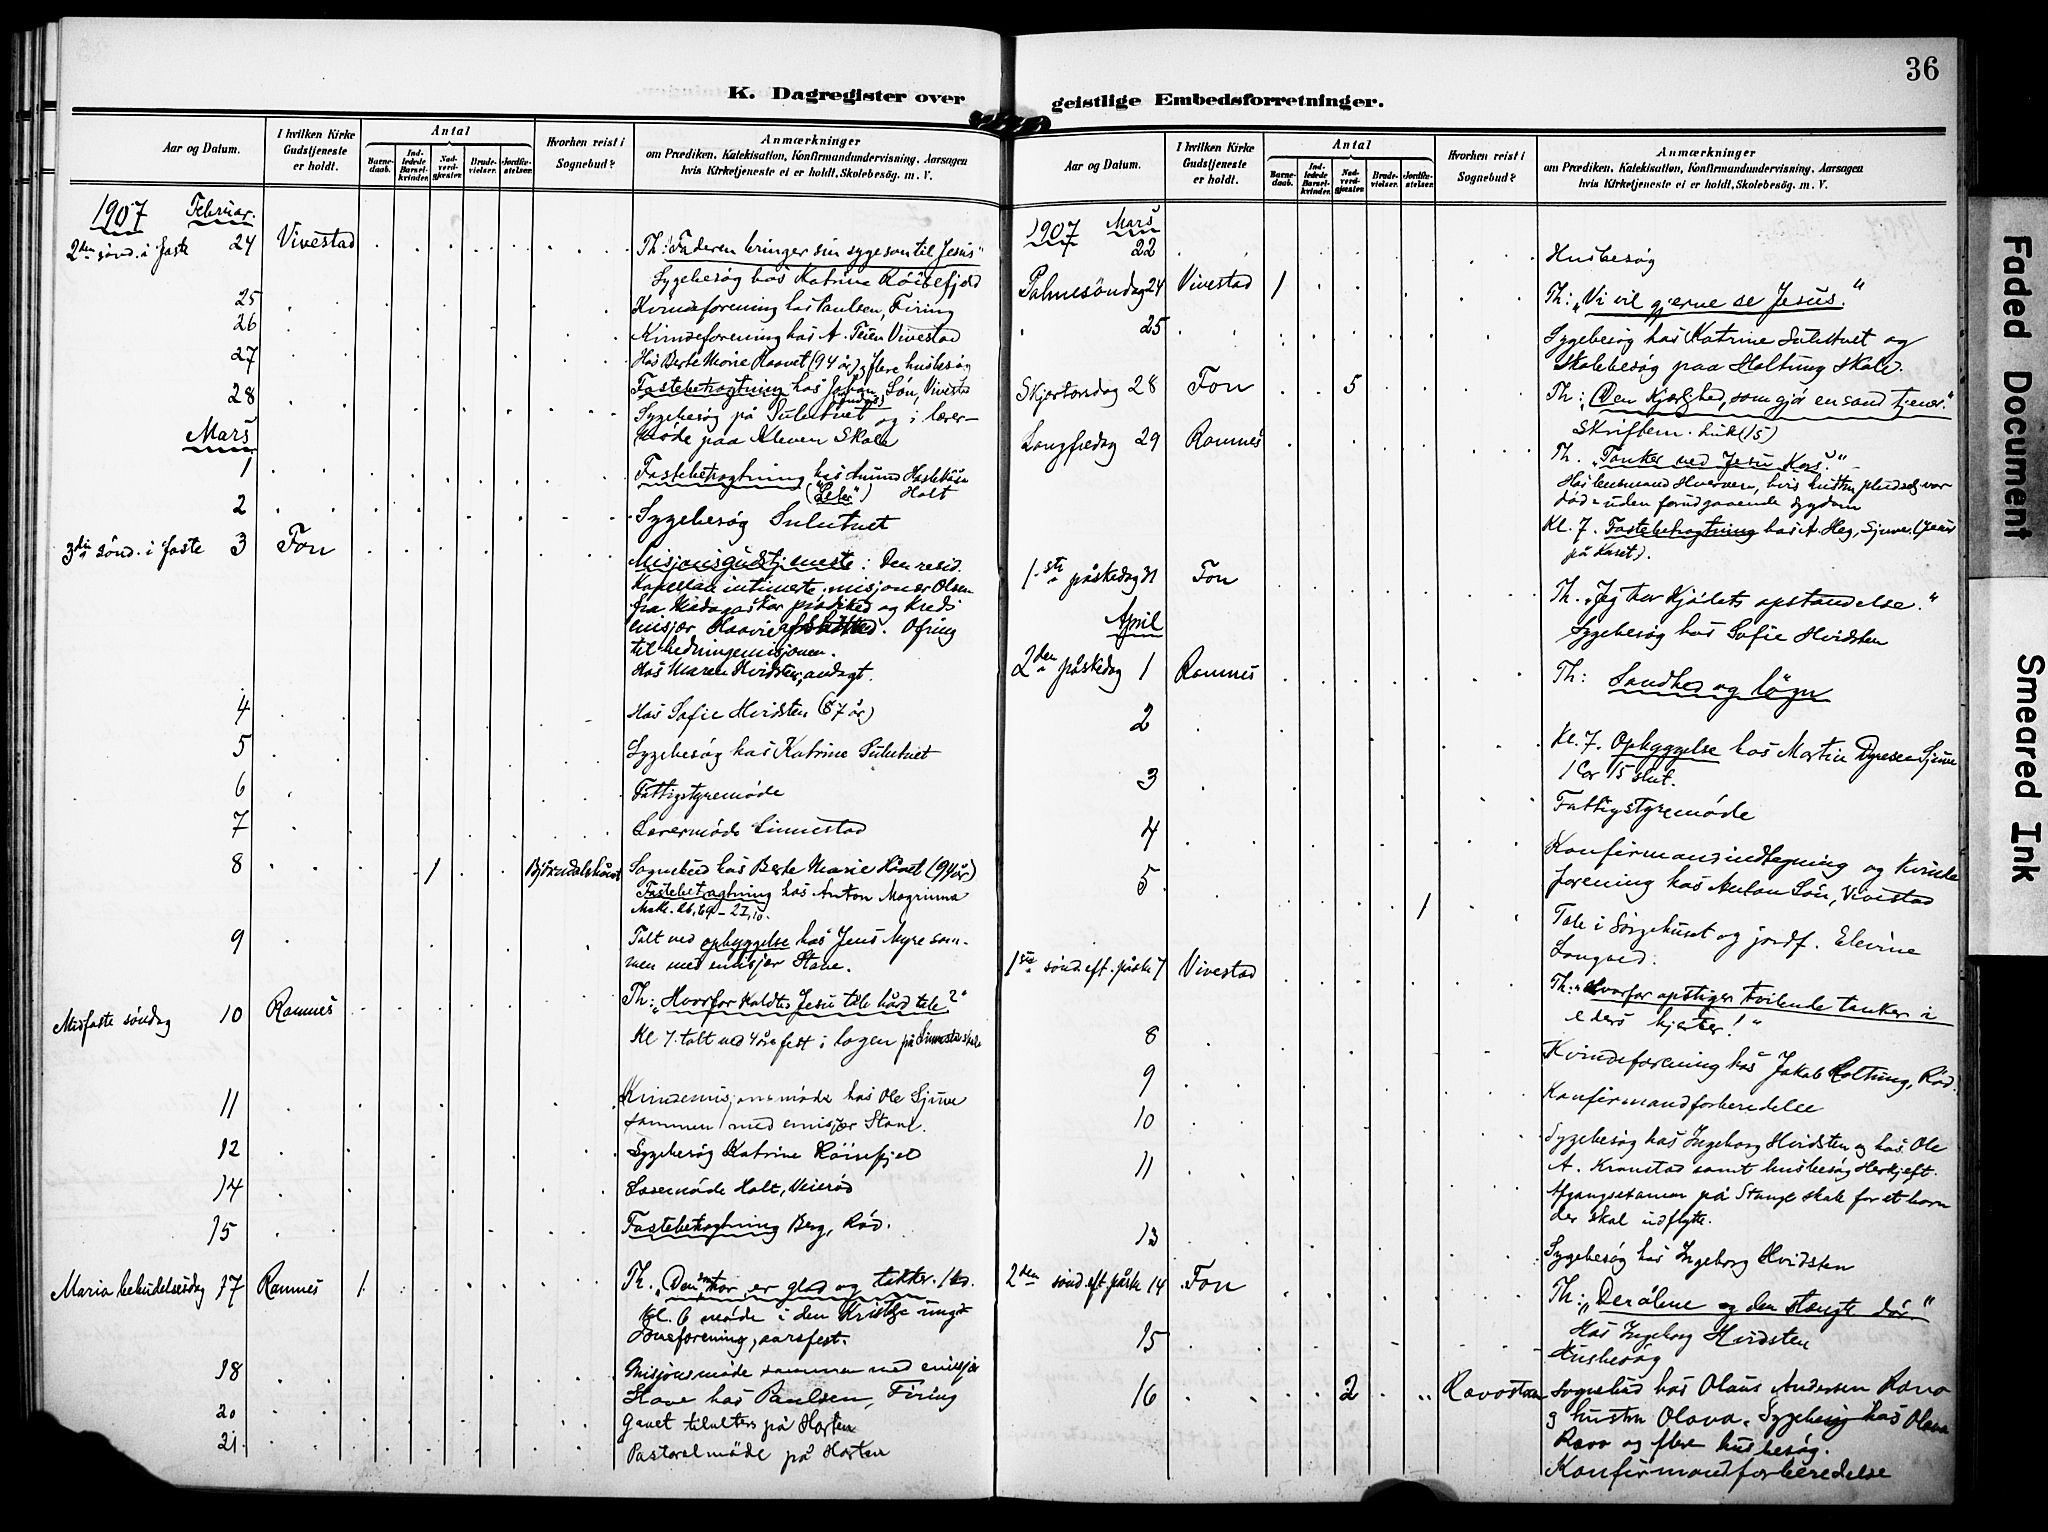 36
K. Dagregister over geistlige Embedsforretninger.
Aar og Datum.
I hvilken Kirke Gudstjeneste er holdt.
Antal
Barnedaab.
Indledede Barselkvinder.
Nadverdgjester.
Brudevielser.
Jordfæstelser.
Hvorhen reist i Sognebud?
Anmærkninger
om Prædiken, Katekisation, Konfirmandundervisning, Aarsagen
hvis Kirketjeneste ei er holdt, Skolebesøg. m. V.
1907 Februar.
2den sønd. i faste 24 Vivestad Th: "Faderen bringer sin syge søn til Jesus"
Sygebesøg hos Katrine
25 Kvindeforening hos Paulsen, Firing
26 Kvindeforening hos A. Teien Vivestad
27 Hos Berte Marie (94 år) & flere husbesøg
Fastebetragtning hos Johan Søn, Vivestad
28 Sygebesøg på og i lærer-
møde paa Kleven Skole
Mars
1 Fastebetragtning hos Amund
Holt
2 Sygebesøg
3die sønd. i faste 3 Fon Misjonsgudstjeneste: Den resid.
Kapellan intimerte, misjonær Olsen
fra Madagaskar prædiked og Kreds
emisjær Haavie Ofring
til hedningemisjonen.
Hos Maren Hvidsten, andagt.
4 Hos Sofie Hvidsten (87 år)
5 Sygebesøg hos Katrine
6 Fattigstyremøde
7 Lærermøde Linnestad
8 1 Sognebud hos Berte Marie (94 år)
Fastebetragtning hos Anton
9 Talt ved opbyggelse hos Jens Myre sam-
men med emisjær Stave.
Midfaste søndag 10 Ramnes Th: "Hvorfor kaldtes Jesu tale hård tale?"
Kl 7 talt ved årsfest i logen på
11 Kvindemisjonsmøde hos Ole Sjuve
sammen med emisjær Stave.
12 Sygebesøg Katrine
14 Læsemøde Holt, Veierød
15 Fastebetragtning Berg, Rød.
Maria bebudelsesdag 17 Ramnes 1 Th. "Den som tror er glad og takker.
Kl. 6 møde i den Kristlige unge-
domsforening, aarsfest.
18 Misjonsmøde sammen med emisjær
Stave hos Paulsen, Firing
20 Gaaet tilalters på Horten
21. Pastoralmøde på Horten
Aar og Datum.
I hvilken Kirke Gudstjeneste er holdt.
Antal
Barnedaab.
Indledede Barselkvinder.
Nadverdgjester.
Brudevielser.
Jordfæstelser.
Hvorhen reist i Sognebud?
Anmærkninger
om Prædiken, Katekisation, Konfirmandundervisning, Aarsagen
hvis Kirketjeneste ei er holdt, Skolebesøg. m. V.
1907 Mars
22 Husbesøg
Palmesøndag 24 Vivestad 1 Th: "Vi vil gjerne se Jesus."
25 Sygebesøg hos Katrine og
Skolebesøg paa Holtung Skole.
Skjertorsdag 28 Fon 5 Th: "Den Kjærlighed, som gjør en sand tjener."
Skriftem.
Langfredag 29 Ramnes Th. "Tanker ved Jesu Kors."
Hos lensmand Hverven, hvis hustru pludselig var
død uden forudgaaende sygdom
Kl. 7. Fastebetragtning hos A. Heg, Sjuve, (Jesus
på Korset).
1.ste påskedag 31 Fon Th. "Jeg tror Kjødets opstandelse."
Sygebesøg hos Sofie Hvidsten
April
2den påskedag 1 Ramnes Th: Sandhed og løgn
2 Kl. 7. Opbyggelse hos Martin Sjuve
1 Cor 15 slut.
3 Fattigstyremøde
4 Konfirmandindtegning og Kvinde
forening hos Anton Søn, Vivestad
5 1 Tale i Sørgehuset og jordf. Elevine
1ste sønd. eft. påske 7 Vivestad Th: "Hvorfor opstiger tvilende tanker i
eders hjerter!"
8 Kvindeforening hos Jakob Holtung, Rød.
9 Konfirmandforberedelse
10 Sygebesøg hos Ingeborg Hvidsten og hos Ole
A. Kronstad samt husbesøg
11 Afgangsexamen på Stange skole for et barn
der skal udflytte.
13 Sygebesøg hos Ingeborg Hvidsten
2den sønd. eft påske 14 Fon Th: "Den åbne og den stængte dør"
Hos Ingeborg Hvidsten
15 Husbesøg
16 2 " Sognebud hos Olaus Andersen
& hustru Olava. Sygebesøg hos Olava
og flere husbesøg.
Konfirmandforberedelse
Faded Document
Smeared Ink